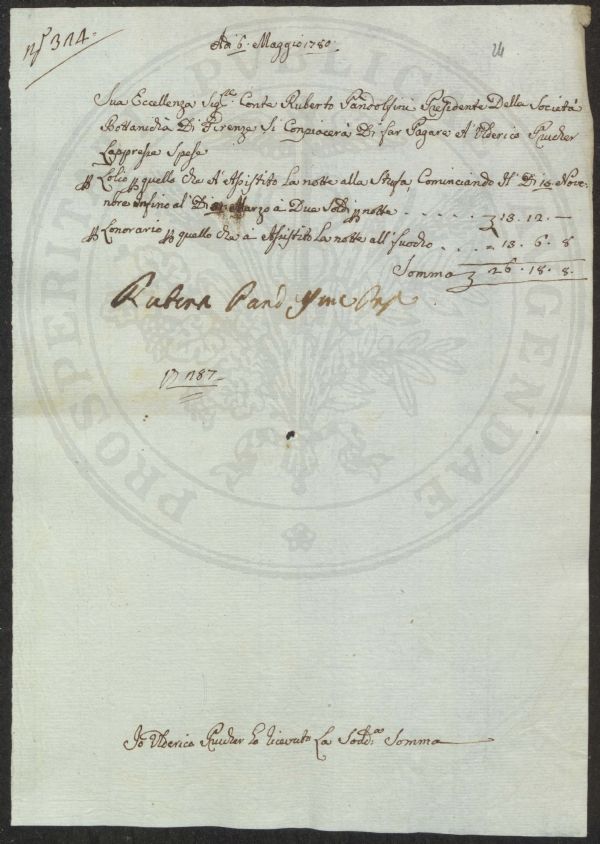 N.º 314.
Adi 6. Maggio 1780.
24
Sua Eccellenza Sig.re Conte Ruberto Pandolfini Presidente Della Società
Bottanicha Di Firenze Si Conpiacerà Di far Pagare A Ulderico Prucher
Lappresse Spese
P Lolio P quello che A Assistito La notte alla Stufa, Cominciando Il Di 10 Nove
nbre Infino al Di Marzo à Due Soldi P notte . . . . . 13. 12. —
P Lonorario P quello cha à Assistito La notte all fuocho . . . . 13. 6. 8
Somma 26. 18. 8.
1787.
Io Ulderico Prucher ho ricevuto La Sodd.a Somma
PROSPERITATI PUBLICAE AUGENDAE